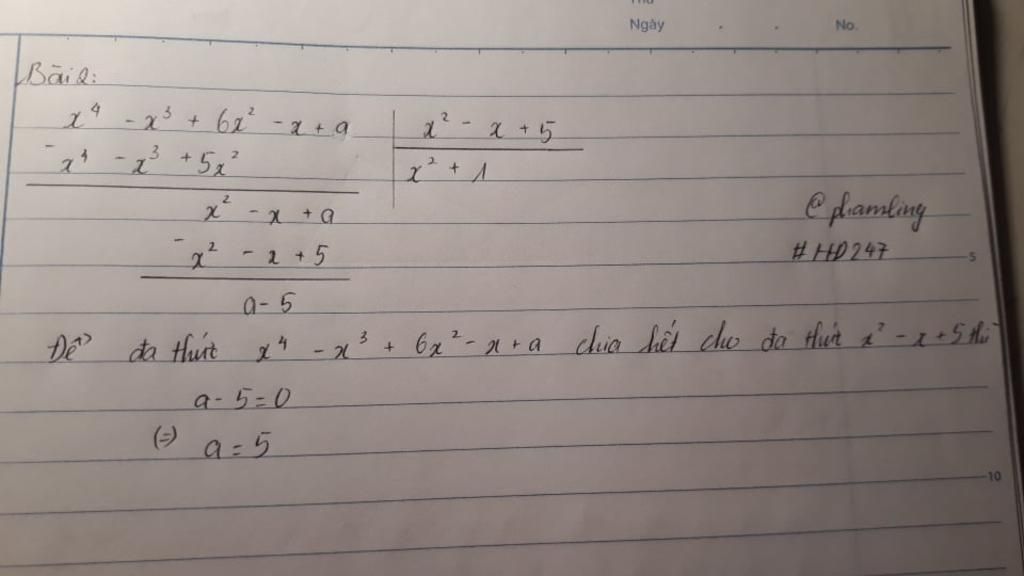 Thứ
Ngày . . No.
Bài 2:
x⁴ - x³ + 6x² - x + a | x² - x + 5
- x⁴ - x³ + 5x² | x² + 1
x² - x + a
@phamling
- x² - x + 5
#HD247
5
a - 5
Để đa thức x⁴ - x³ + 6x² - x + a chia hết cho đa thức x² - x + 5 thì
a - 5 = 0
(=) a = 5
10